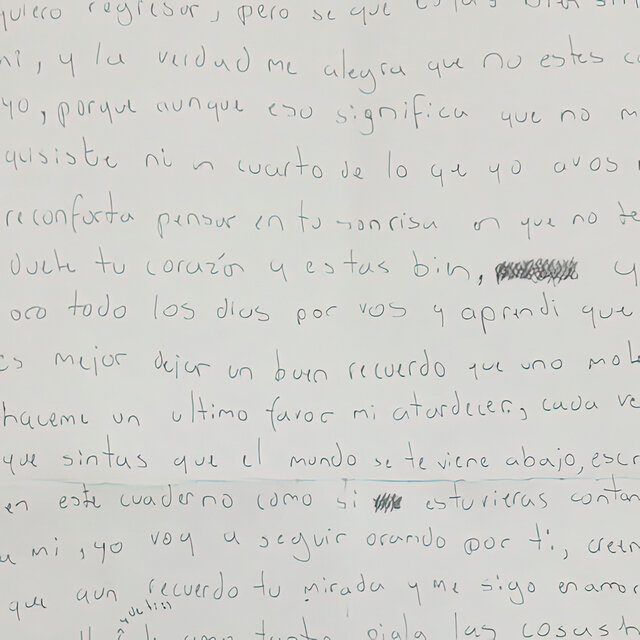 quiero regresar, pero se que estas bien sin
mi, y la verdad me alegra que no estes co
yo, porque aunque eso significa que no m
quisiste ni un cuarto de lo que yo a vos
reconforta pensar en tu sonrisa en que no te
duele tu corazón y estas bien, y
oro todo los dias por vos y aprendi que
es mejor dejar un buen recuerdo que uno mal
haceme un ultimo favor mi atardecer, cada ve
que sintas que el mundo se te viene abajo, escr
en este cuaderno como si estuvieras contan
a mi, yo voy a seguir orando por ti, creen
que aun recuerdo tu mirada y me sigo enamor
tanto, ojala las cosas